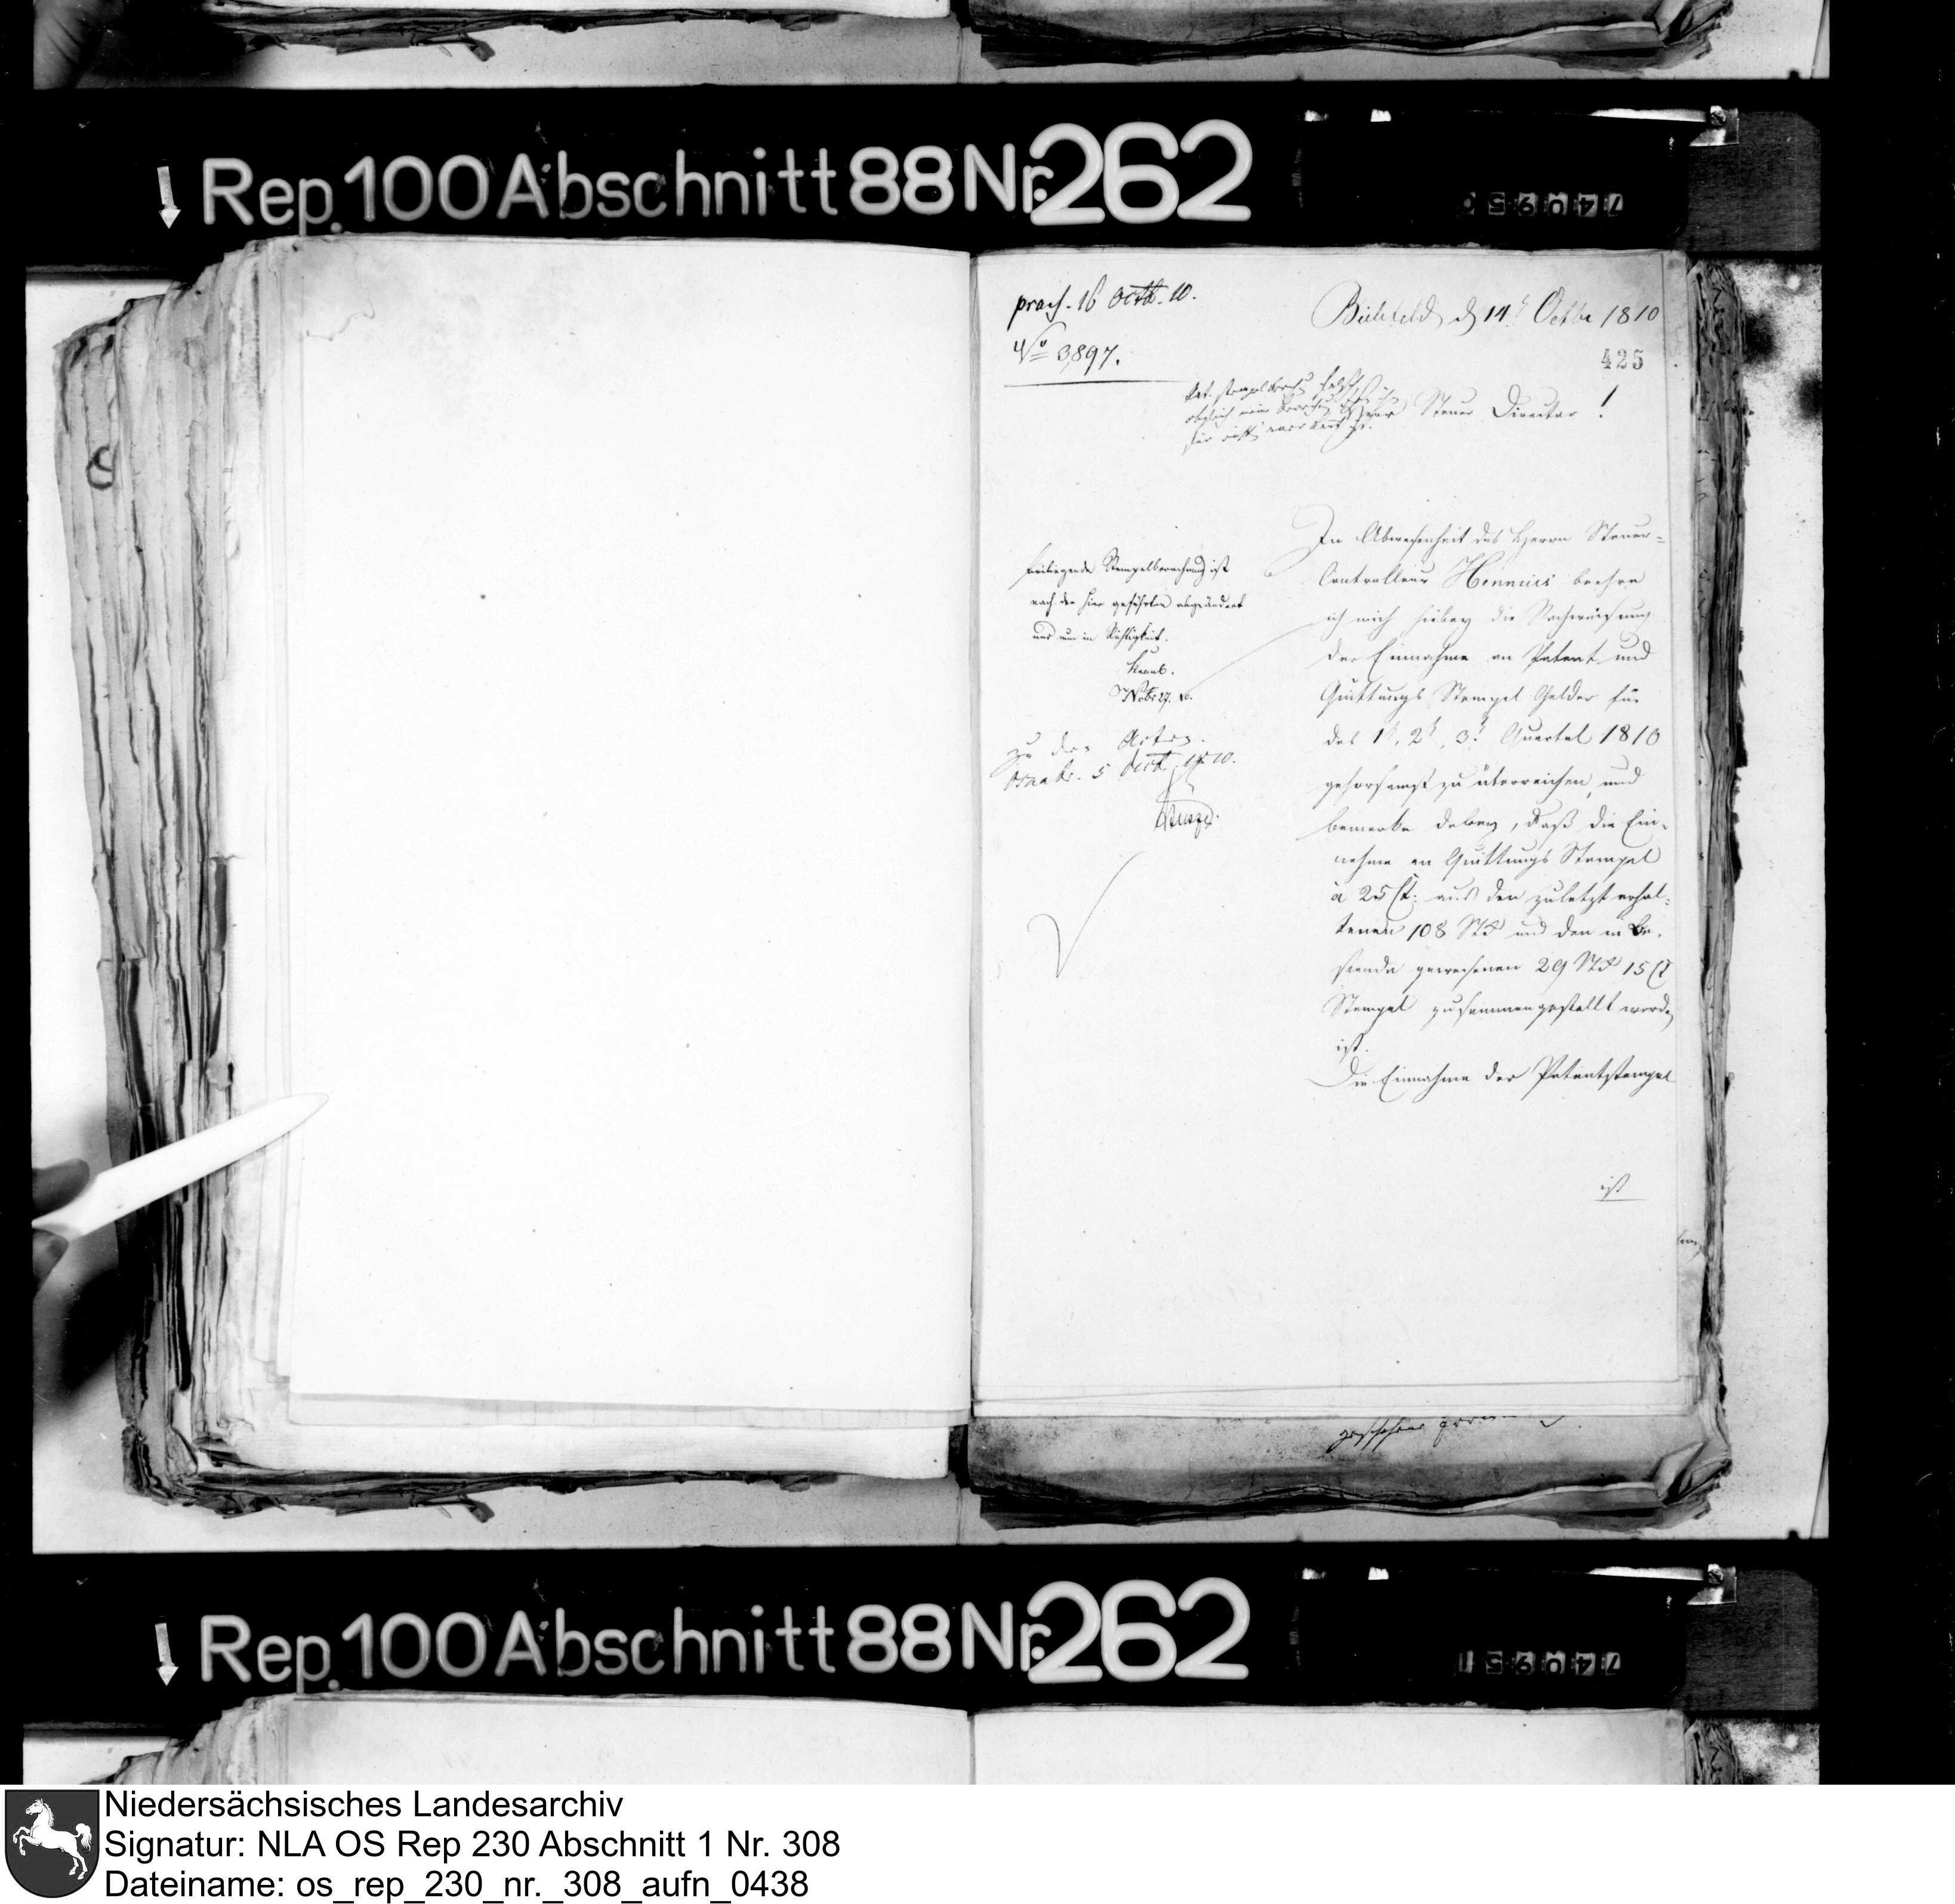 Rep. 100 Abschnitt 88 Nr. 262
praes. 16 Octb. 10.
No 3,897.
Bielefeld d 14t Octbr 1810
425
Herr Steuer Director!
In Abwesenheit des Herrn Steuer-
Controlleur Hennicii beehre
ich mich hiebey die Nachweisung
der Einnahme an Patent und
Quittungs Stempel Gelder für
das 1t, 2t, 3t Quartal 1810
gehorsamst zu überreichen, und
bemerke dabey, daß die Ein-
nahme an Quittungs Stempel
à 25 Ct. aus den zuletzt erhal-
tenen 108 Stk und den im Be-
stande gewesenen 29 Stk 15 Ct
Stempel zusammengestellt worden
ist.
Die Einnahme der Patentstempel
ist
beiliegende Stempelberechnung ist
nach der hier geführten abgeändert
und nun in Richtigkeit.
Nobr 27. 10.
Zu den Acten.
Osnabr. 5 1810.
Rep. 100 Abschnitt 88 Nr. 262
Niedersächsisches Landesarchiv
Signatur: NLA OS Rep 230 Abschnitt 1 Nr. 308
Dateiname: os_rep_230_nr._308_aufn_0438